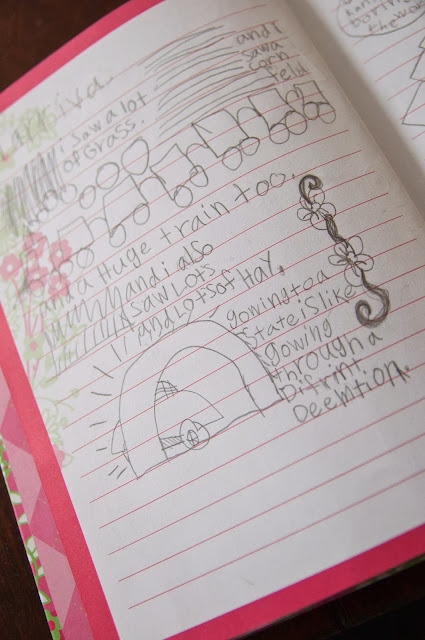 i saw a lot
of Grass.
and I
saw a
corn
feild
and a Huge train too.
and i also
saw lots
and lots of HAY.
gowing to a
State is like
gowing
through a
Difrint
Deemtion.